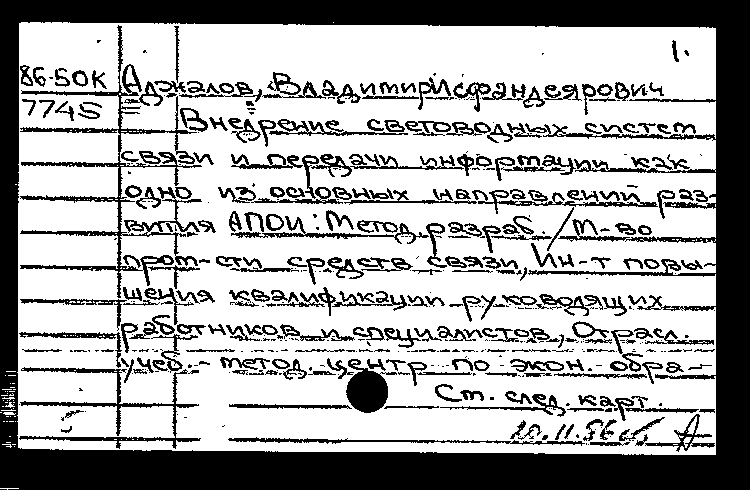 1.
86-50К Алэкалов, Владимир Исфандеярович
7745
Внедрение световодных систем
связи и передачи информации как
одно из основных направлений раз-
вития АПОИ: Метод. разраб. / М-во
пром-сти средств связи, Ин-т повы-
шения квалификации руководящих
работников и специалистов, Отрасл.
учеб.-метод. центр по экон. обра-
Ст. след. карт.
20.11.86